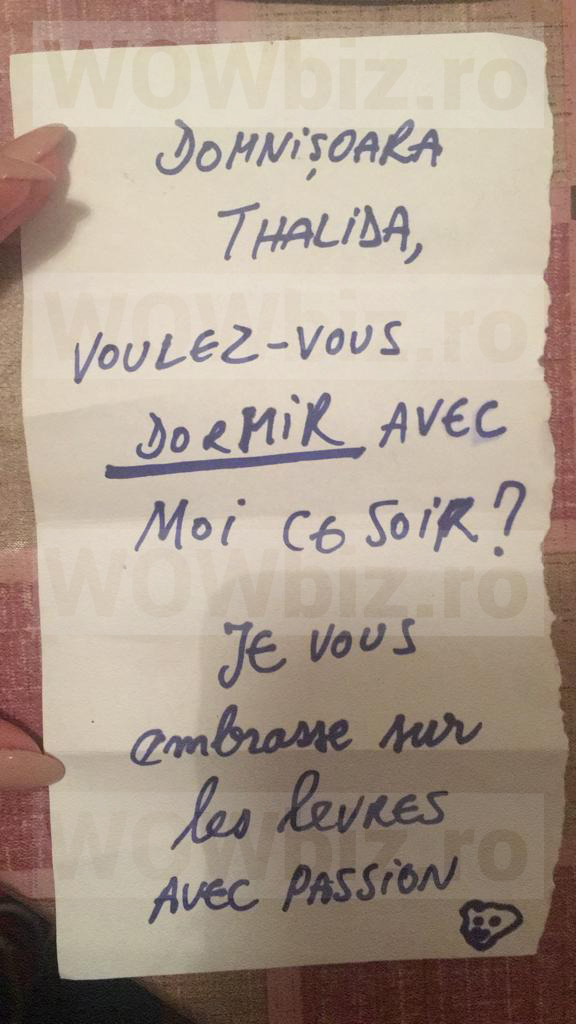 WOWbiz.ro
DOMNIȘOARA
THALIDA,
WOWbiz.ro
VOULEZ-VOUS
DORMIR AVEC
MOi CE SOiR?
WOWbiz.ro
JE VOUS
embrasse sur
les leVRES
WOWbiz.ro
AVEC PASSiON